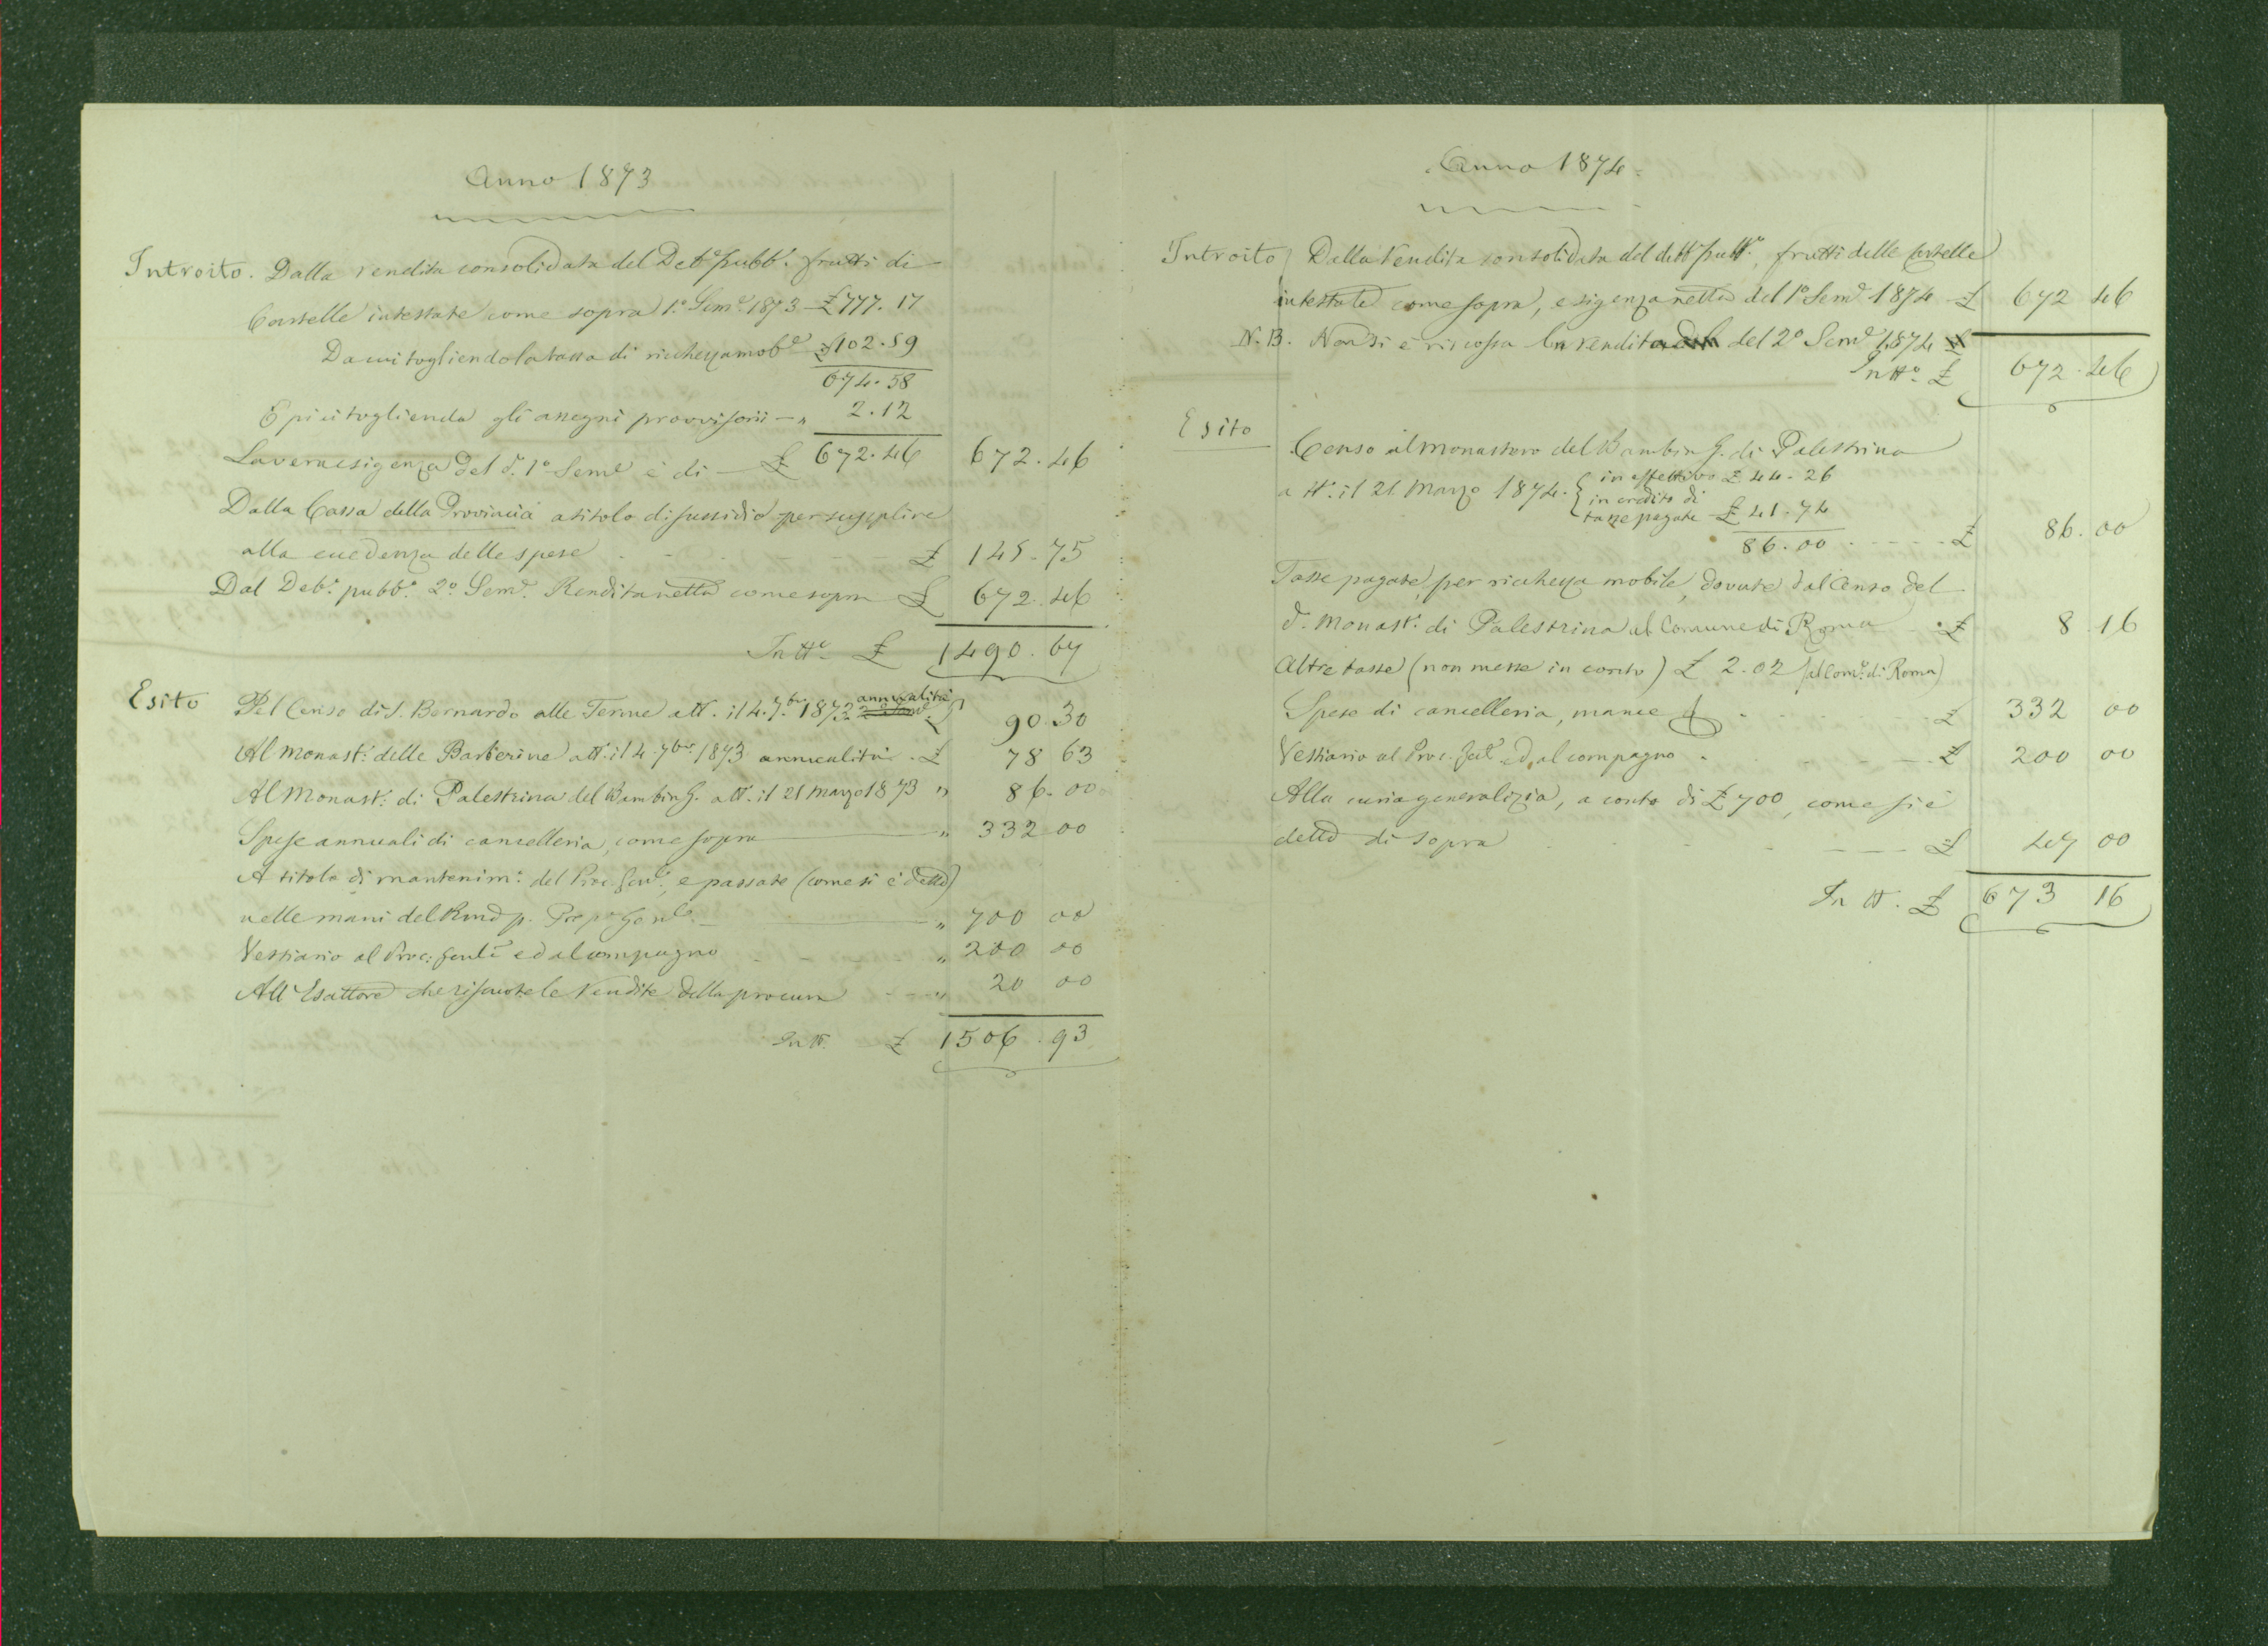 Anno 1873
Introito. Dalla rendita consolidata del Deb.º pubb.º frutti di
Cartelle intestate come sopra 1.º Sem.e 1873 £ 777.17
Da cui togliendo la tassa di ricchezza mob.e £ 102.59
674.58
E più togliendo gli assegni provvisorii — " 2.12
La vera esigenza del d.º 1º Sem.e è di — £ 672.46 672.46
Dalla Cassa della Provincia a titolo di sussidio per supplire
alla eccedenza delle spese £ 145.75
Dal Deb.º pubb.º 2º Sem.e Rendita netta come sopra £ 672.46
In tt.º £ 1490.67
Esito Pel Censo di S. Bernardo alle Terme att. il 4. 7.bre 1873 annualità £ 90.30
Al Monast.º delle Barberine att. il 4 7bre 1873 annualità £ 78 63
Al Monast.º di Palestrina del Bambin G. att. il 21 Marzo 1873 " 86.00
Spese annuali di cancelleria, come sopra " 332 00
A titolo di mantenim.º del Proc. Gen.e, e passate (come si è detto)
nelle mani del Rmo p. Prep.º Gen.le " 700 00
Vestiario al Proc. Gen.le ed al compagno " 200 00
All'Esattore che riscuote le rendite della procura " 20 00
In tt. £ 1506.93
Anno 1874
Introito Dalla rendita consolidata del deb.º pubb.º, frutti delle cartelle
intestate come sopra, esigenza netta del 1º Sem.e 1874 £ 672 46
N.B. Non si è riscossa la rendita del 2º Sem.e 1874
In tt.º £ 672.46
Esito
Censo al Monastero del Bambin G. di Palestrina
a tt.º il 21 Marzo 1874. { in effettivo £ 44-26
in credito di
tasse pagate £ 41.74
86.00 £ 86.00
Tasse pagate per ricchezza mobile, dovute dal Censo del
d.º Monast.º di Palestrina al Comune di Roma £ 8 16
Altre tasse (non messe in conto) £ 2.02 (al Com.e di Roma)
Spese di cancelleria, mance £ 332 00
Vestiario al Proc. Gen.le ed al compagno £ 200 00
Alla curia generalizia, a conto di £ 700, come si è
detto di sopra £ 47 00
In tt. £ 673 16